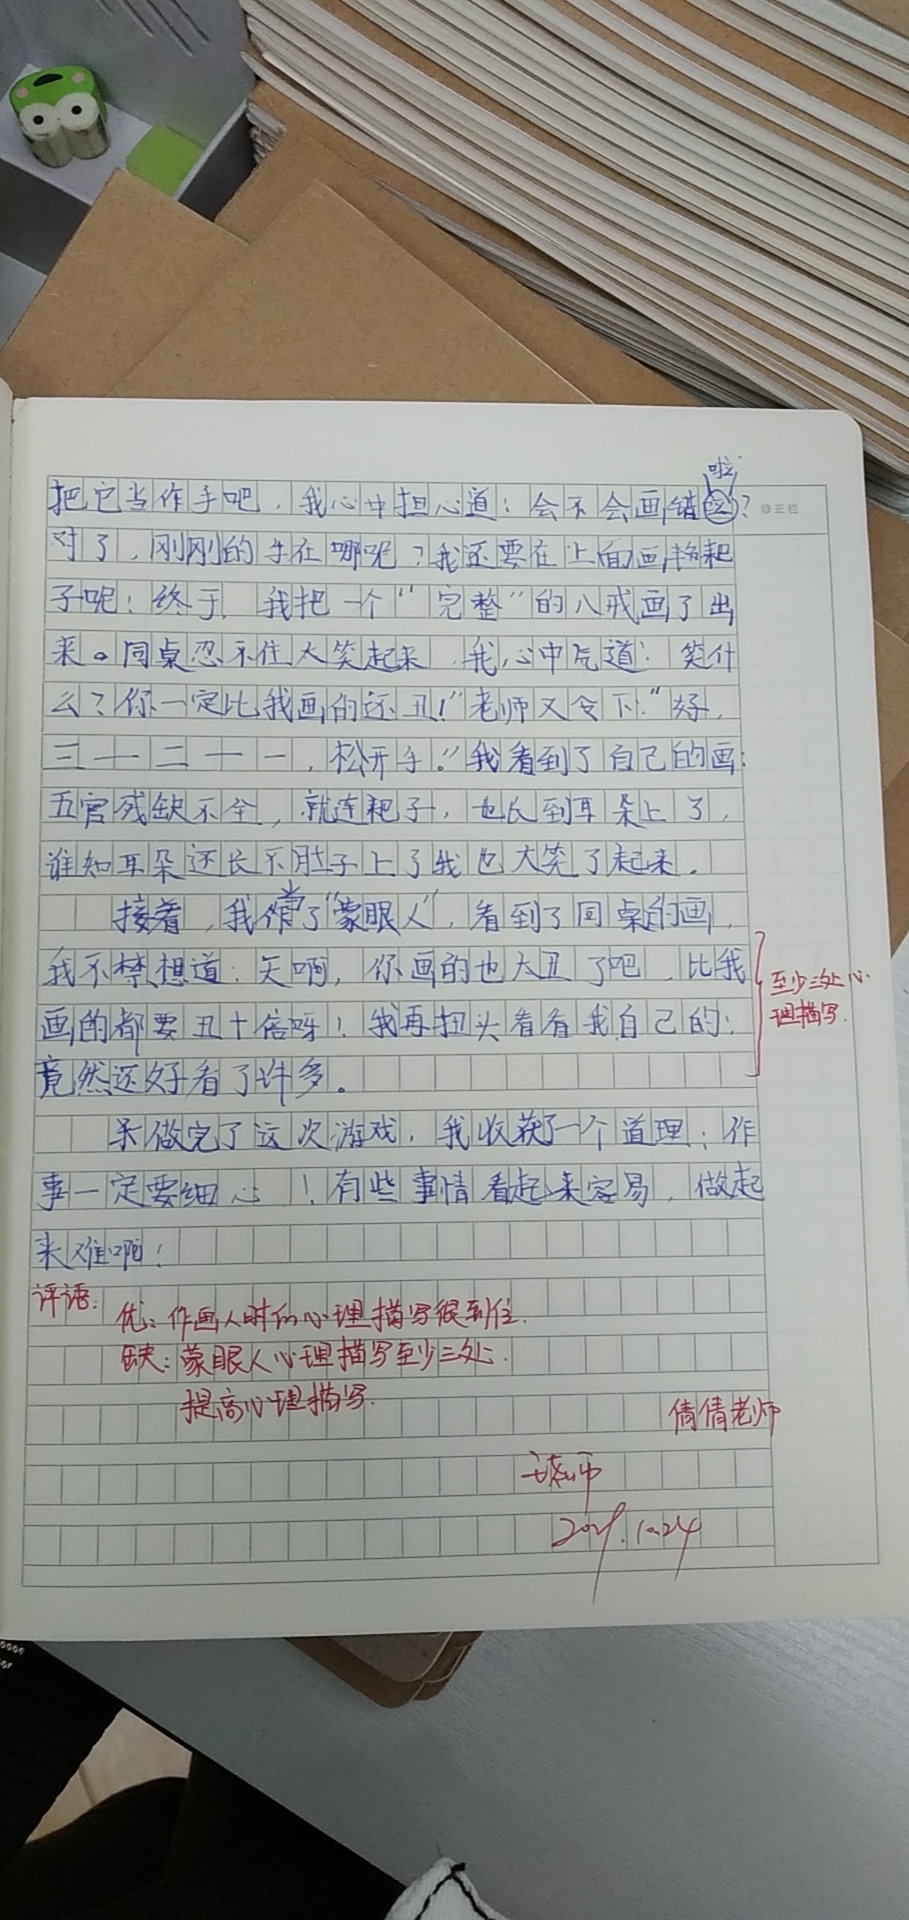 把它当作手吧，我心中担心道：会不会画错啦？
修正栏
对了，刚刚的手在哪呢？我还要在上面画耙
子呢！终于，我把一个“完整”的八戒画了出
来。同桌忍不住大笑起来，我心中气道：笑什
么？你一定比我画的还丑！”老师又令下：“好，
三十二十一，松开手。”我看到了自己的画：
五官残缺不全，就连耙子，也长到耳朵上了，
谁知耳朵还长不肚子上了我也大笑了起来。
接着，我当了“蒙眼人”，看到了同桌的画，
我不禁想道：天啊，你画的也太丑了吧，比我
画的都要丑十倍呀！我再扭头看看我自己的：
竟然还好看了许多。
至少三处心
理描写.
做完了这次游戏，我收获了一个道理：作
事一定要细心！有些事情看起来容易，做起
来难啊！
评语：
优：作画人时的心理描写很到位.
缺：蒙眼人心理描写至少三处.
提高心理描写.
倩倩老师
2021.10.24